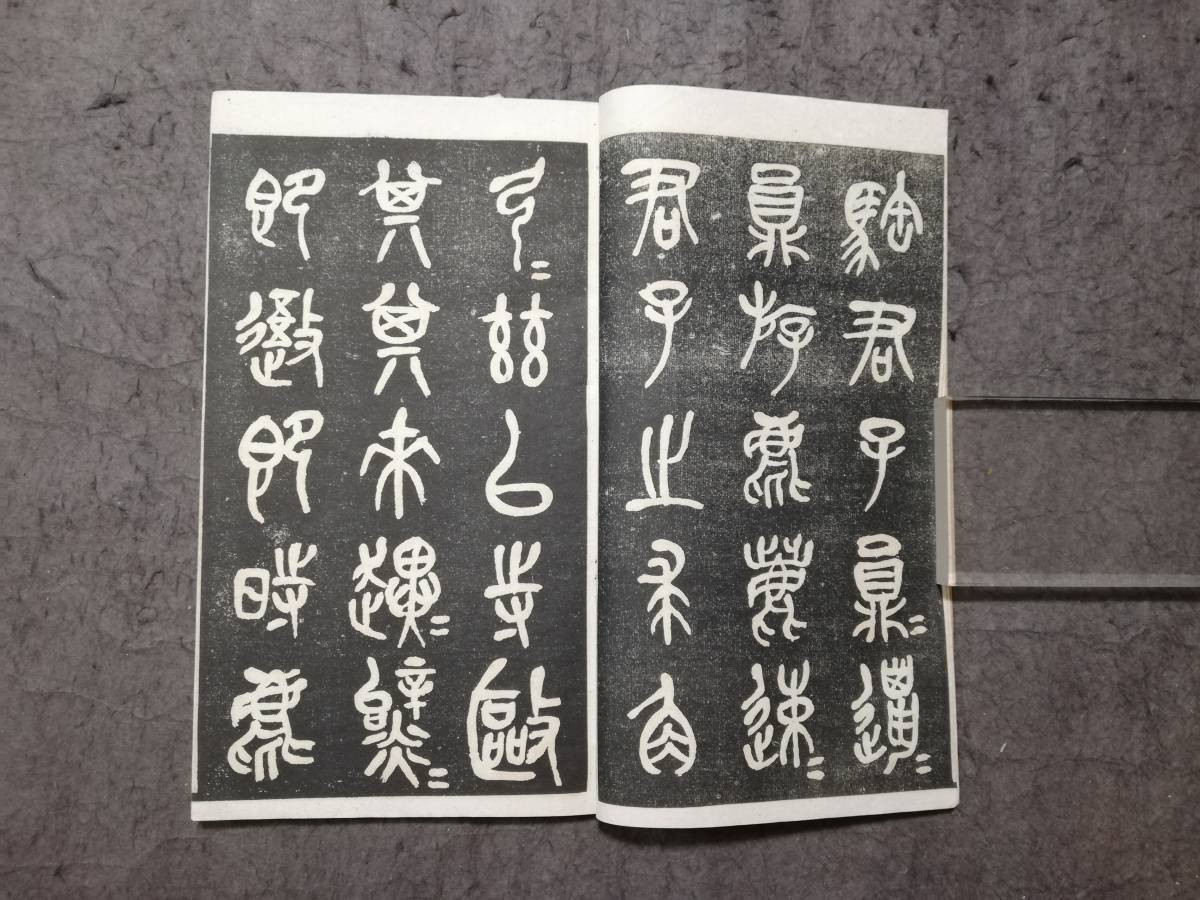 君子員=邋=
員斿麀鹿速=
君子之求角
弓=兹以寺敺
其其來趩=
即即時麀